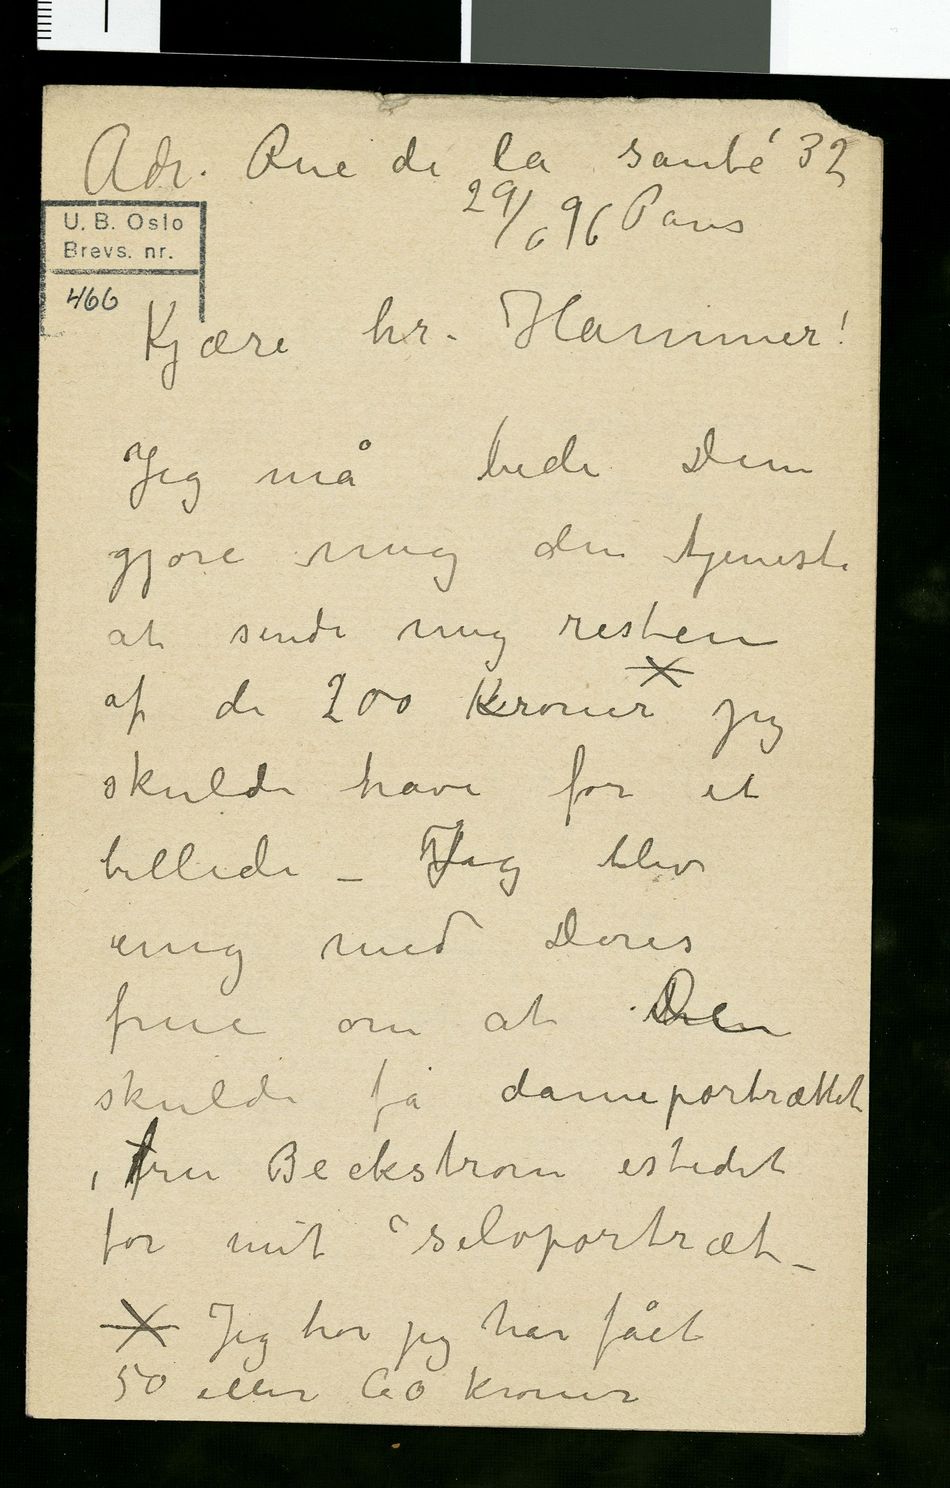 Adr. Rue de la santé 32
29/6 96 Paris
U. B. Oslo
Brevs. nr.
466
Kjære hr. Hammer!
Jeg må bede Dem
gjøre mig den tjeneste
at sende mig resten
af de 200 Kroner X jeg
skulde have for et
billede – Jeg blev
enig med Deres
frue om at De
skulde få dameportrættet
, fru Beckstrøm istedet
for mit selvportræt –
X Jeg tror jeg har fået
50 eller 60 kroner